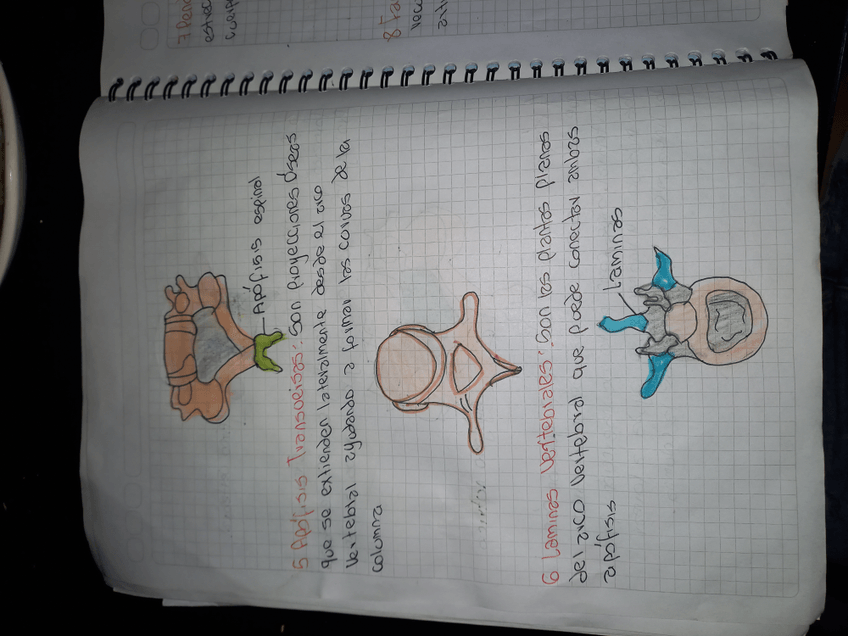 Apófisis espinal
5 Apófisis Transversas: son proyecciones óseas
que se extienden lateralmente desde el arco
vertebral ayudando a formar las corvas de la
columna
6 Laminas Vertebrales: son las plantas planas
del arco vertebral que puede conectar ambas
apófisis
Laminas